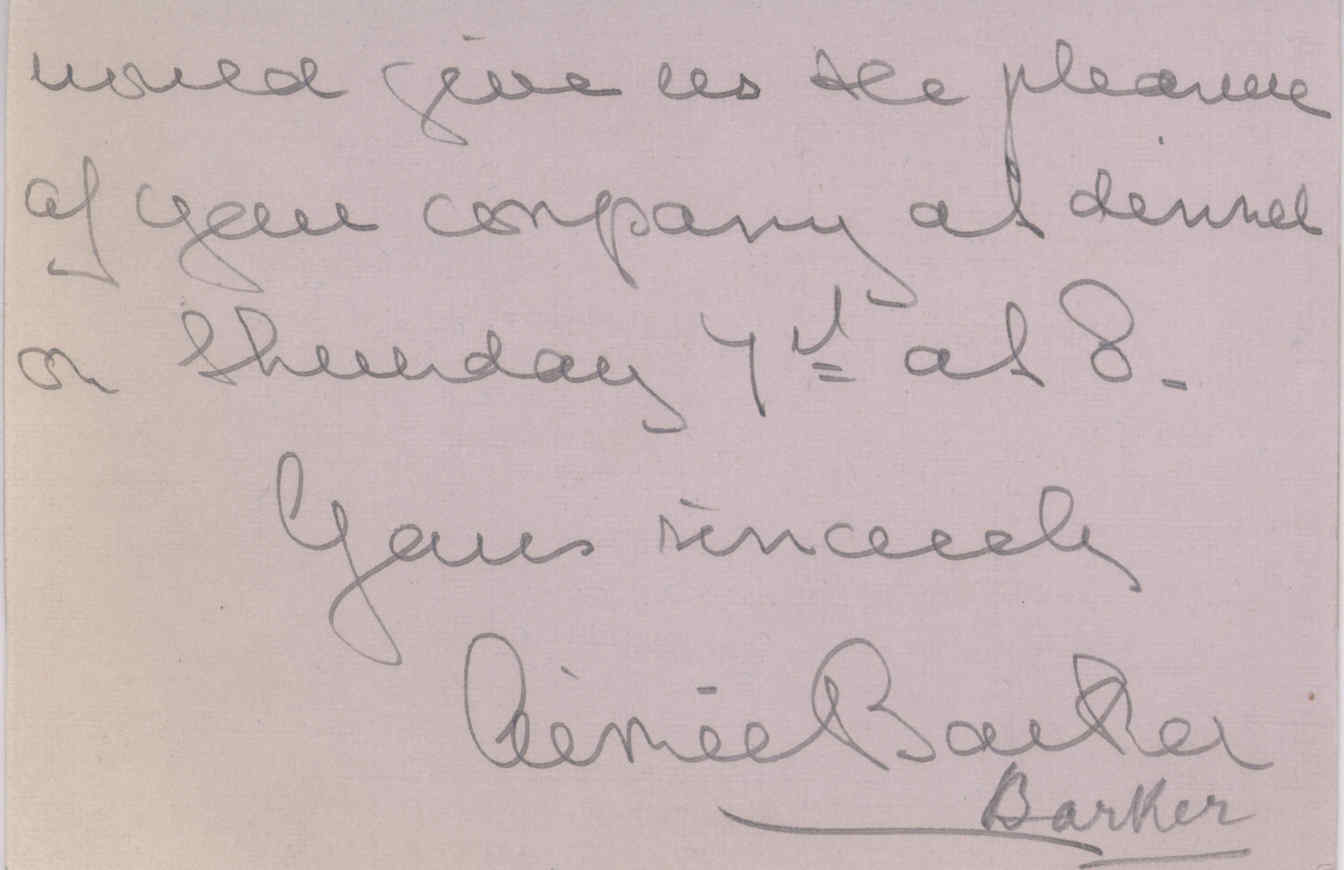 would give us the pleasure
of your company at dinner
on Thursday 7th at 8.
Yours sincerely
Aimée Barker
Barker